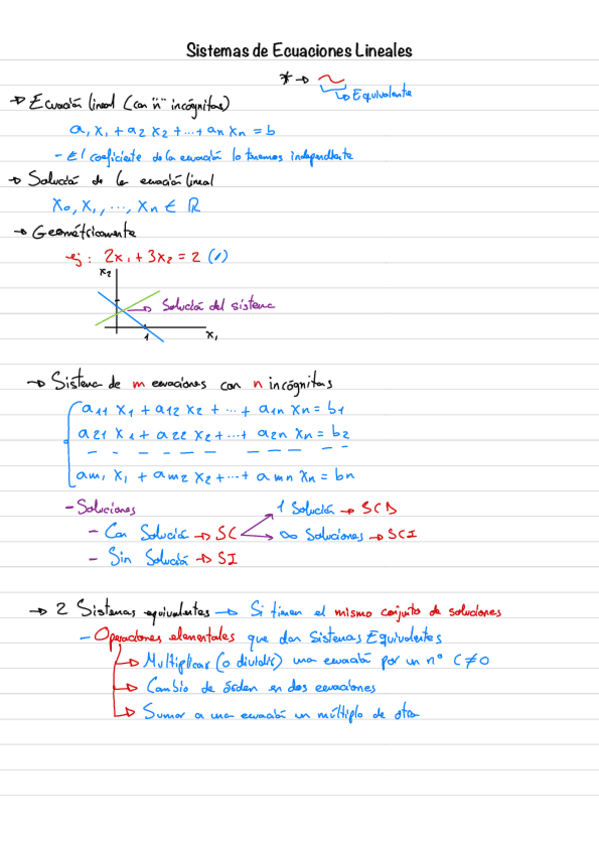 Sistemas de Ecuaciones Lineales
* → ~
↳ Equivalente
→ Ecuación lineal (con "n" incógnitas)
a₁ x₁ + a₂ x₂ + ... + an xn = b
- El coeficiente de la ecuación lo tenemos independiente
→ Solución de la ecuación lineal
x₀, x₁, ..., xn ∈ ℝ
→ Geométricamente
ej: 2x₁ + 3x₂ = 2 (1)
x₂
→ Solución del sistema
1 x₁
→ Sistema de m ecuaciones con n incógnitas
a₁₁ x₁ + a₁₂ x₂ + ... + a₁n xn = b₁
a₂₁ x₁ + a₂₂ x₂ + ... + a₂n xn = b₂
- - - - - - - - - -
am₁ x₁ + am₂ x₂ + ... + amn xn = bn
- Soluciones 1 Solución → SCD
- Con Solución → SC ∞ Soluciones → SCI
- Sin Solución → SI
→ 2 Sistemas equivalentes → Si tienen el mismo conjunto de soluciones
- Operaciones elementales que dan Sistemas Equivalentes
↳ Multiplicar (o dividir) una ecuación por un nº C ≠ 0
↳ Cambio de orden en dos ecuaciones
↳ Sumar a una ecuación un múltiplo de otra